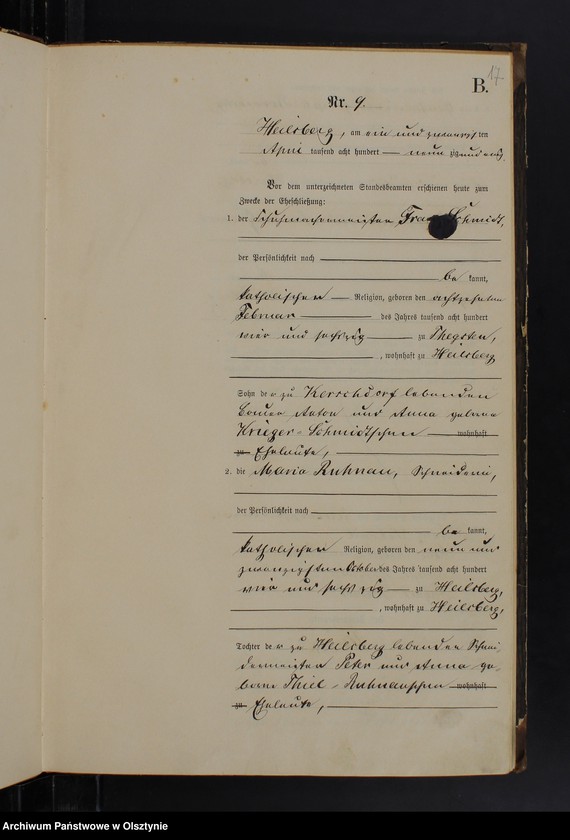 17
B.
Nr. 9.
Heilsberg, am ein und zwanzigsten
April tausend acht hundert neunzig und eins.
Vor dem unterzeichneten Standesbeamten erschienen heute zum
Zwecke der Eheschließung:
1. der Schuhmachermeister Franz Schmidt,
der Persönlichkeit nach
be kannt,
katholischer Religion, geboren den achtzehnten
Februar des Jahres tausend acht hundert
vier und sechszig zu Thegsten,
, wohnhaft zu Heilsberg
Sohn der zu Kerschdorf lebenden
Anton und Anna geborne
Krieger-Schmidtschen wohnhaft
zu Eheleute,
2. die Maria Ruhnau, Schneiderin,
der Persönlichkeit nach
be kannt,
katholischer Religion, geboren den neun und
zwanzigsten October des Jahres tausend acht hundert
vier und sechszig zu Heilsberg,
, wohnhaft zu Heilsberg,
Tochter der zu Heilsberg lebenden Schnei-
dermeister Peter und Anna ge-
borne Thiel-Ruhnauschen wohnhaft
zu Eheleute,
Archiwum Państwowe w Olsztynie